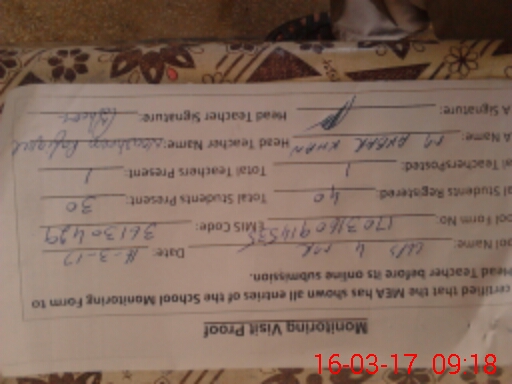 Monitoring Visit Proof
certified that the MEA has shown all entries of the School Monitoring Form to
Head Teacher before its online submission.
ool Name: GPS 4 Date: -3-17
ool Form No: EMIS Code: 36130429
al Students Registered: 40 Total Students Present: 30
al TeachersPosted: 1 Total Teachers Present: 1
A Name: M AKBAR KHAN Head Teacher Name:
A Signature: Head Teacher Signature:
16-03-17 09:18